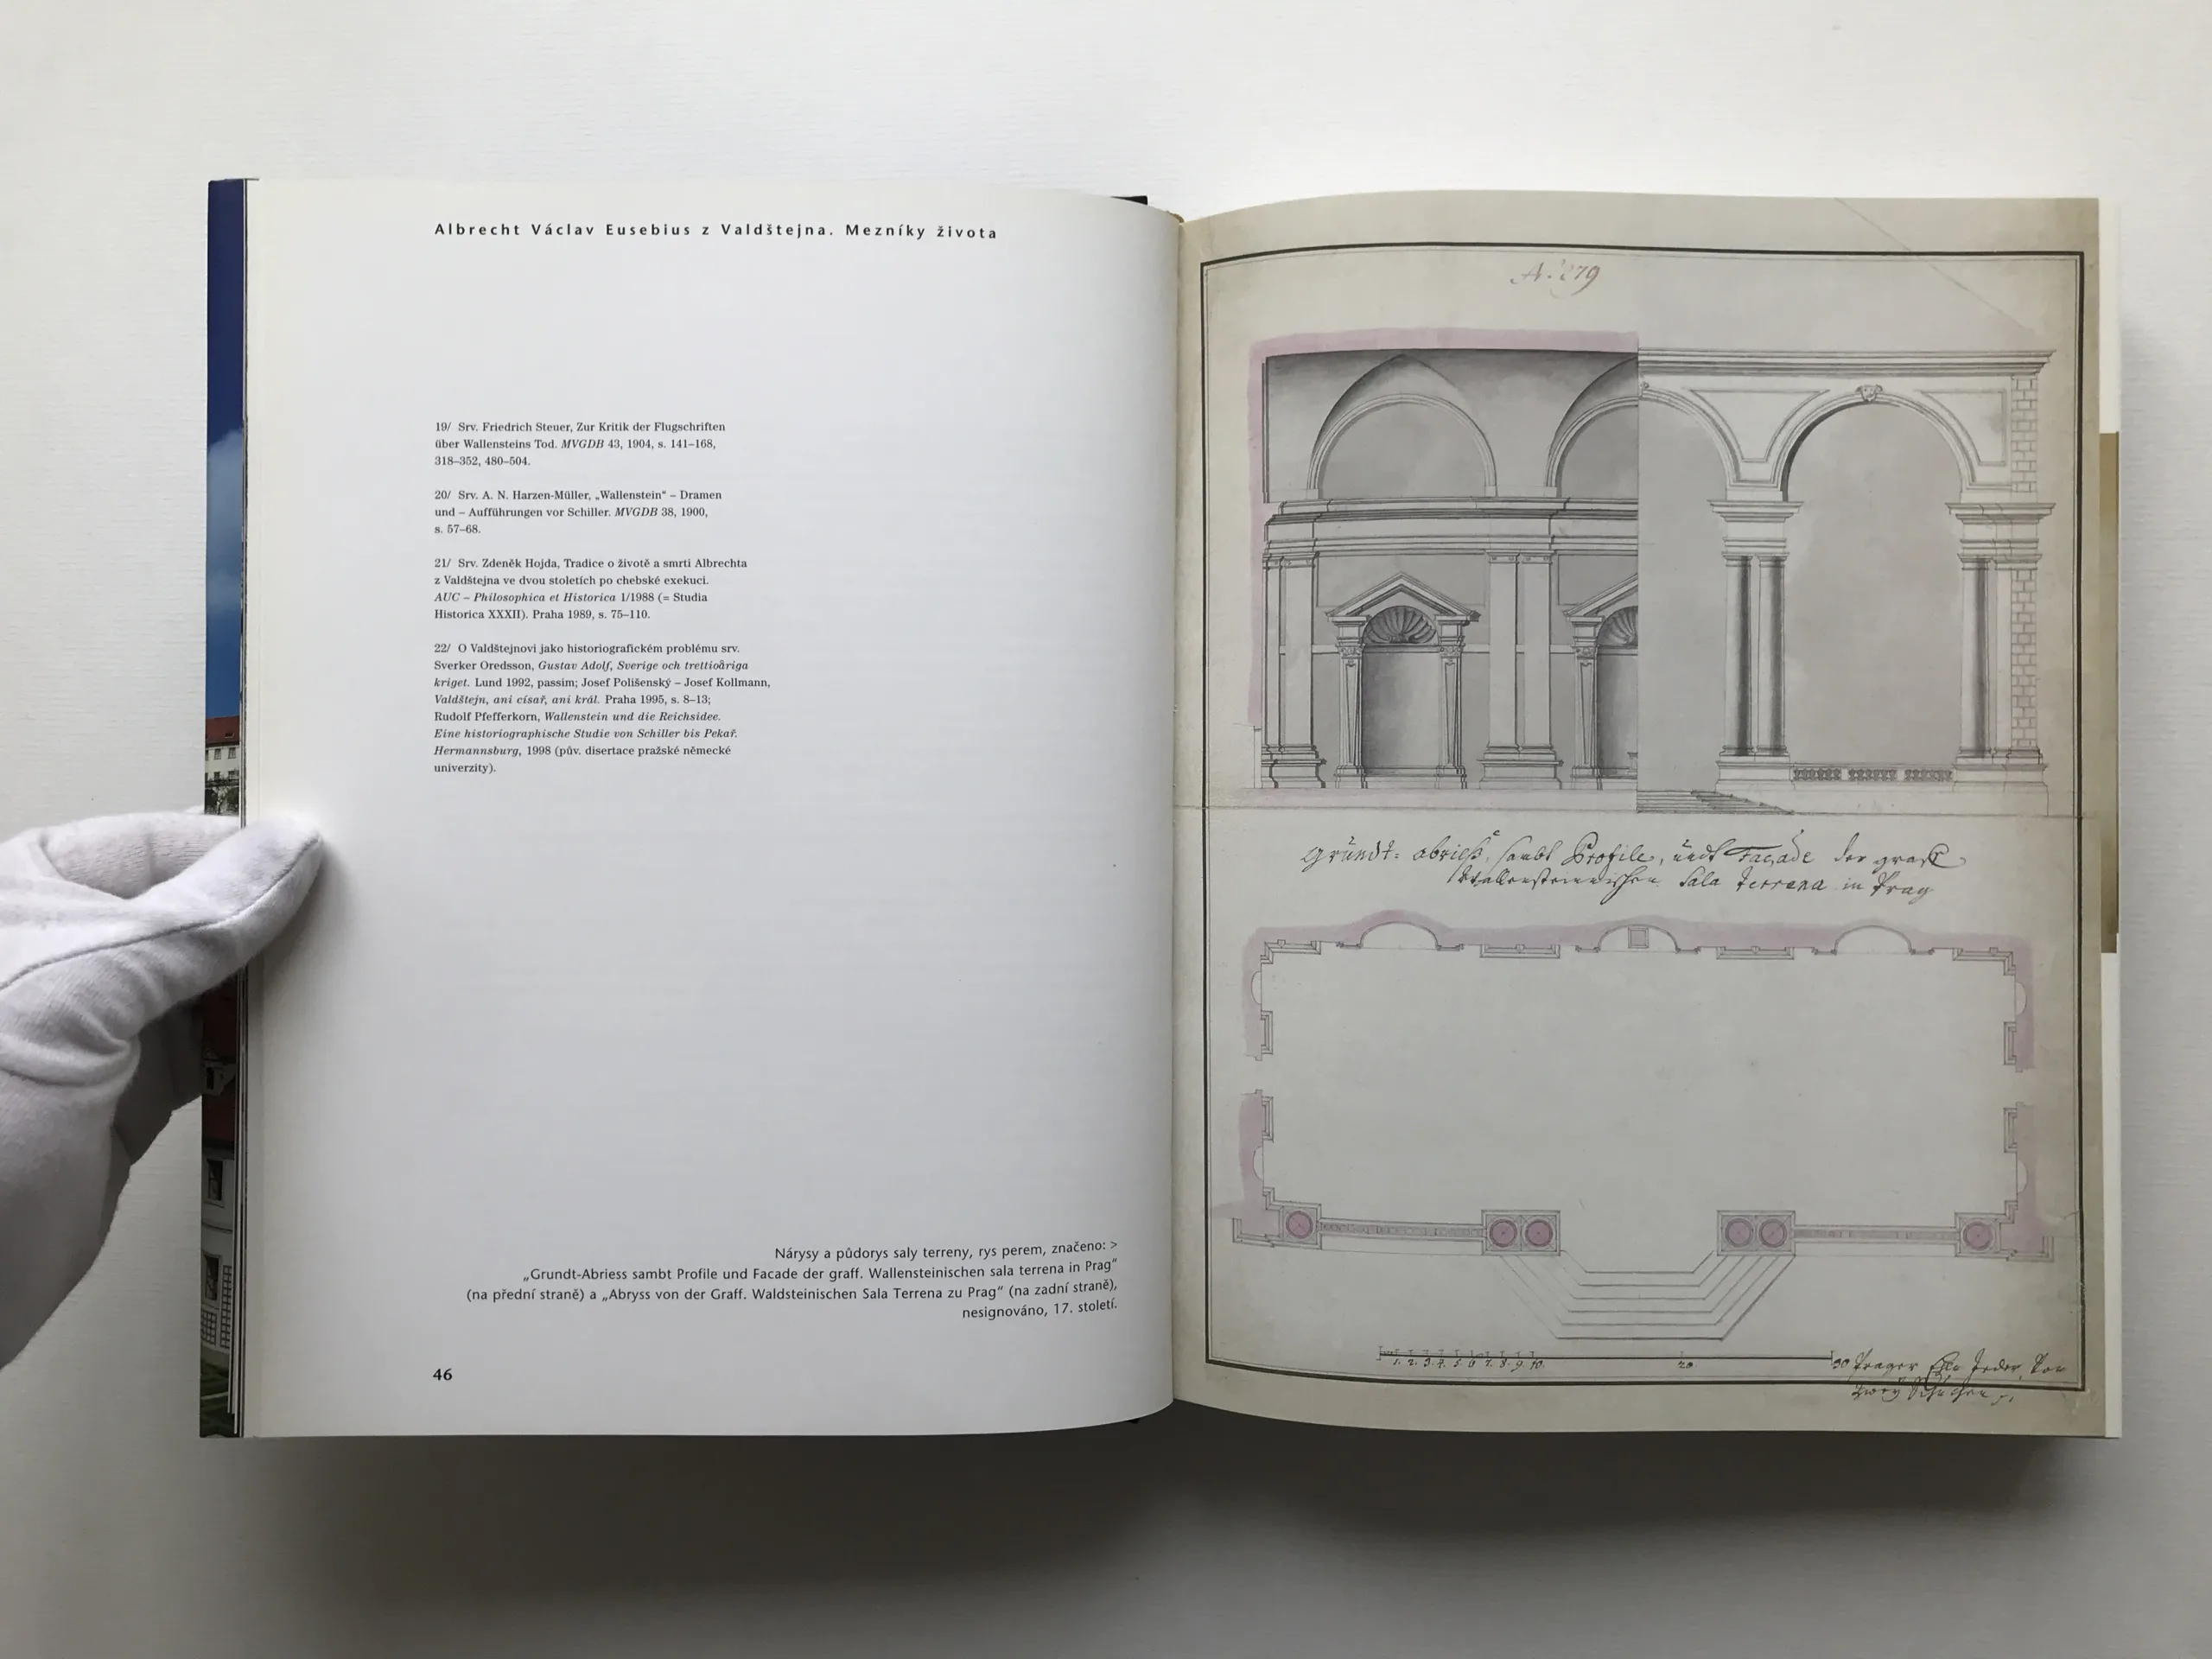 Albrecht Václav Eusebius z Valdštejna. Mezníky života
19/ Srv. Friedrich Steuer, Zur Kritik der Flugschriften
über Wallensteins Tod. MVGDB 43, 1904, s. 141–168,
318–352, 480–504.
20/ Srv. A. N. Harzen-Müller, „Wallenstein“ – Dramen
und – Aufführungen vor Schiller. MVGDB 38, 1900,
s. 57–68.
21/ Srv. Zdeněk Hojda, Tradice o životě a smrti Albrechta
z Valdštejna ve dvou stoletích po chebské exekuci.
AUC – Philosophica et Historica 1/1988 (= Studia
Historica XXXII). Praha 1989, s. 75–110.
22/ O Valdštejnovi jako historiografickém problému srv.
Sverker Oredsson, Gustav Adolf, Sverige och trettioåriga
kriget. Lund 1992, passim; Josef Polišenský – Josef Kollmann,
Valdštejn, ani císař, ani král. Praha 1995, s. 8–13;
Rudolf Pfefferkorn, Wallenstein und die Reichsidee.
Eine historiographische Studie von Schiller bis Pekař.
Hermannsburg, 1998 (pův. disertace pražské německé
univerzity).
Nárysy a půdorys saly terreny, rys perem, značeno: >
„Grundt-Abriess sambt Profile und Facade der graff. Wallensteinischen sala terrena in Prag“
(na přední straně) a „Abryss von der Graff. Waldsteinischen Sala Terrena zu Prag“ (na zadní straně),
nesignováno, 17. století.
46
Grundt: abriess, sambt Profile, undt Façade der graff
Wallensteinischen Sala Terrena in Prag
1. 2. 3. 4. 5. 6. 7. 8. 9. 10. 20. 30 Prager